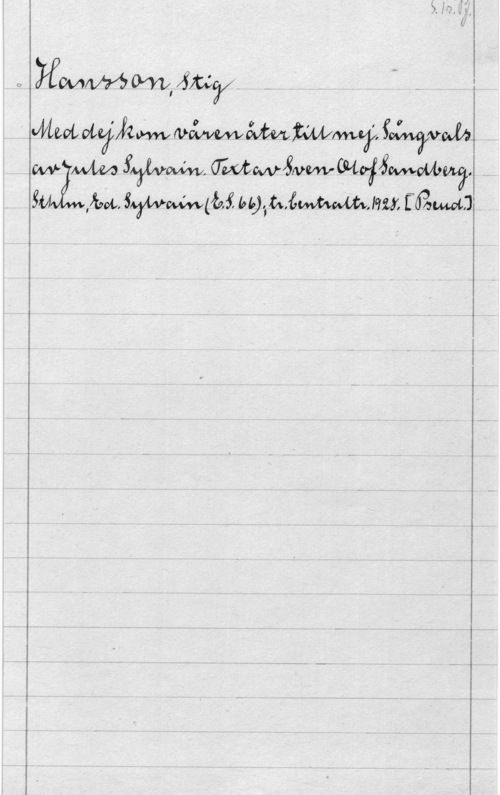 S. 1n. Pf.
Hansson, Stig
Med dej kom våren åter till mej. Sångvals
av Jules Sylvain. Text av Sven-Olof Sandberg.
Sthlm, Ed. Sylvain (E.S. 66); tr. Centraltr. 1928. [Pseud.]